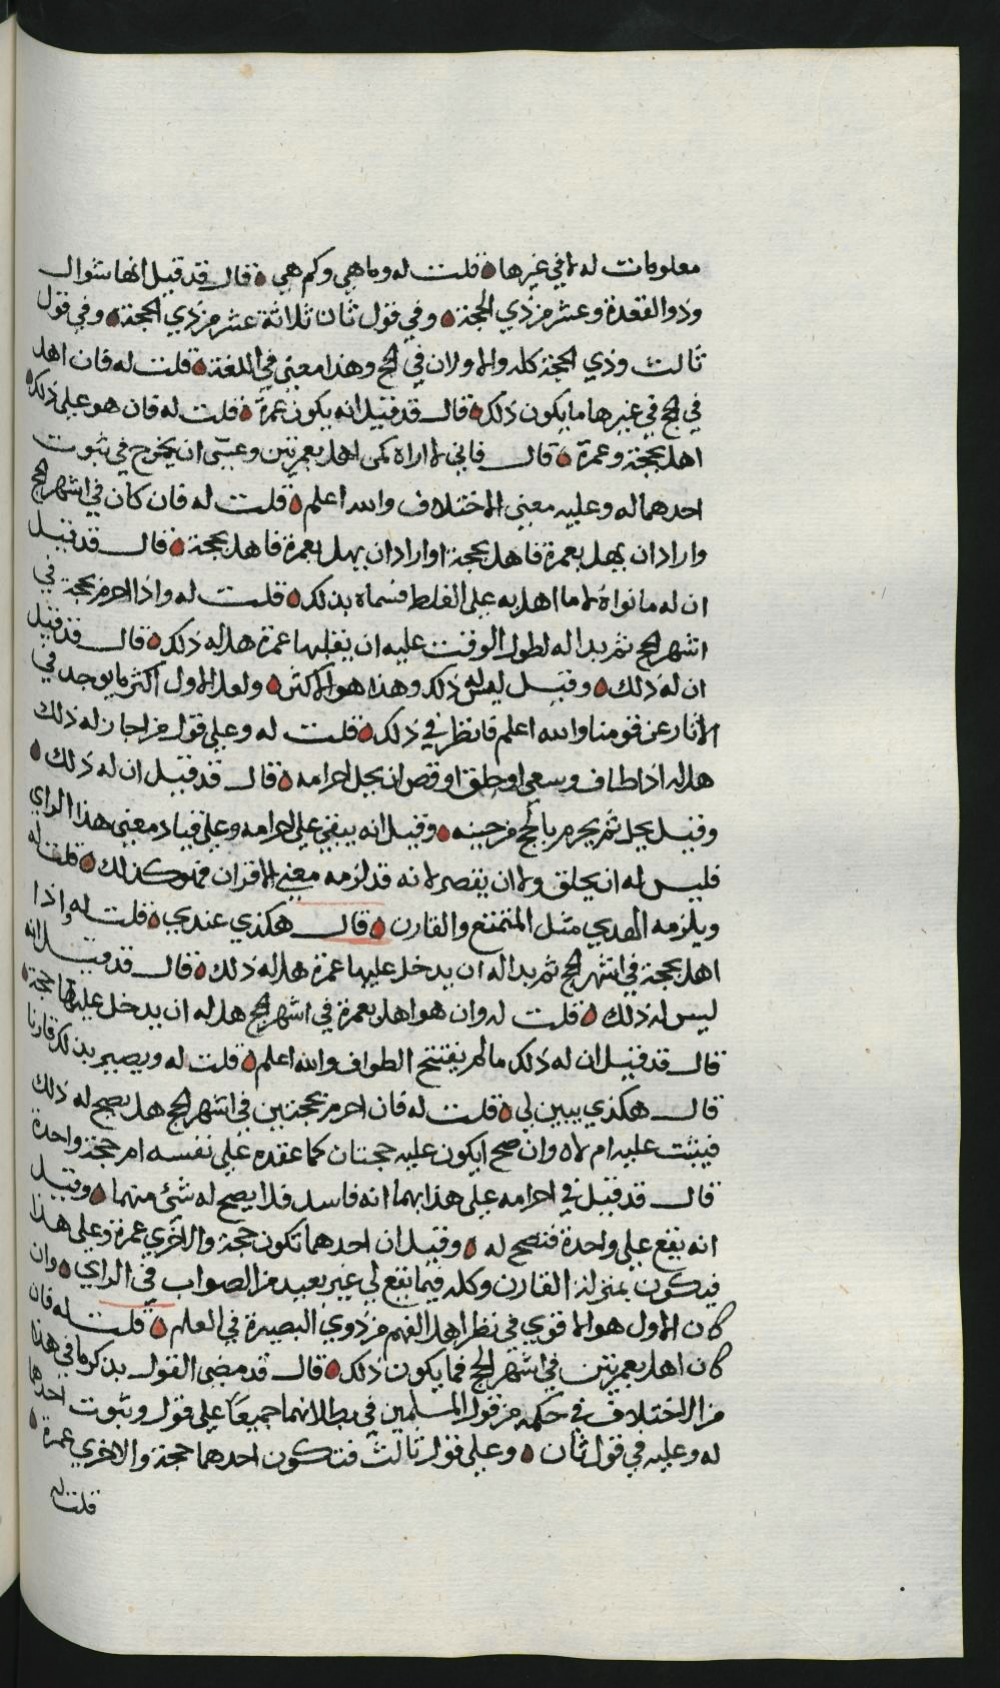 معلومات له لا في غيرها قلت له وما هي وكم هي قال قد قيل انها شوال
وذو القعدة وعشر من ذي الحجة وفي قول ثان ثلاثة عشر من ذي الحجة وفي قول
ثالث وذي الحجة كله والاولان في الحج وهذا معنى في اللغة قلت له فان اهل
في الحج في غيرها ما يكون ذلك قال قد قيل انه يكون عمرة قلت له فان هو على ذلك
اهل بحجة وعمرة قال فاني لا اراه كمن اهل بعمرتين وعسى ان يخرج في ثبوت
احدهما له وعليه معنى الاختلاف والله اعلم قلت له فان كان في اشهر الحج
واراد ان يهل بعمرة فاهل بحجة او اراد ان يهل بعمرة فاهل بحجة قال قد قيل
ان له ما نواه لا ما اهل به على الغلط فسماه بذلك قلت له واذا احرم بحجة في
اشهر الحج ثم بدا له لطول الوقت عليه ان يقلبها عمرة هل له ذلك قال قد قيل
ان له ذلك وقيل ليس له ذلك وهذا هو الاكثر ولعل الاول اكثر ما يوجد في
الاثار عن قومنا والله اعلم فانظر في ذلك قلت له وعلى قول من اجاز له ذلك
هل له اذا طاف وسعى او حلق او قص ان يحل احرامه قال قد قيل ان له ذلك
وقيل يحل ثم يحرم بالحج من حينه وقيل انه يبقى على احرامه وعلى قياد معنى هذا الراي
فليس له ان يحلق ولا ان يقصر لانه قد لزمه معنى الاقران فهو كذلك قلت له
ويلزمه الهدي مثل المتمتع والقارن قال هكذي عندي قلت له واذا
اهل بحجة في اشهر الحج ثم بدا له ان يدخل عليها عمرة هل له ذلك قال قد قيل انه
ليس له ذلك قلت له وان هو اهل بعمرة في اشهر الحج هل له ان يدخل عليها حجة
قال قد قيل ان له ذلك ما لم يفتتح الطواف والله اعلم قلت له ويصير بذلك قارنا
قال هكذي يبين لي قلت له فان احرم بحجتين في اشهر الحج هل يصح له ذلك
فيثبت عليه ام لا وان صح ايكون عليه حجتان كما عقده على نفسه ام حجة واحدة
قال قد قيل في احرامه على هذا بهما انه فاسد فلا يصح له شئ منهما وقيل
انه يقع على واحدة فتصح له وقيل ان احدهما تكون حجة والاخرى عمرة وعلى هذا
فيكون بمنزلة القارن وكله فيما يقع لي غير بعيد من الصواب في الراي وان
كان الاول هو الاقوى في نظر اهل الفهم من ذوي البصيرة في العلم قلت له فان
كان اهل بعمرتين في اشهر الحج فما يكون ذلك قال قد مضى القول بذكر ما في هذا
من الاختلاف في حكمه من قول المسلمين في بطلانهما جميعا على قول وثبوت احدهما
له وعليه في قول ثان وعلى قول ثالث فتكون احدهما حجة والاخرى عمرة
قلت له